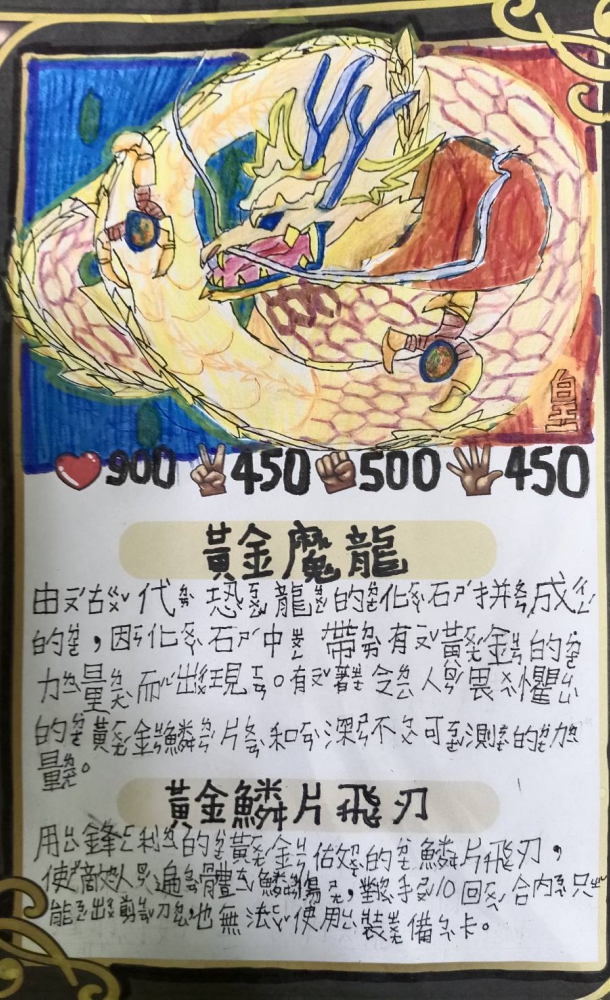 900 450 500 450
黃金魔龍
由古代恐龍的化石拼成
的，因化石中帶有黃金的
力量而出現。有著令人畏懼
的黃金鱗片和深不可測的力
量。
黃金鱗片飛刃
用鋒利的黃金做的鱗片飛刃，
使敵人遍體鱗傷，對手10回合內只
能出剪刀，也無法使用裝備卡。